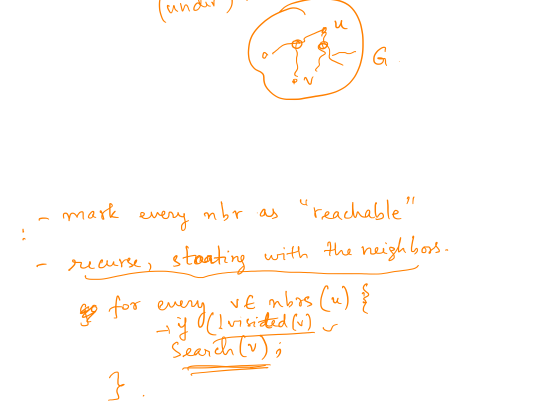 (under)
u
v
G
- mark every nbr as "reachable"
:
- recurse, starting with the neighbors.
for every v ∈ nbrs (u) {
→ if (!visited(v)
Search(v);
}